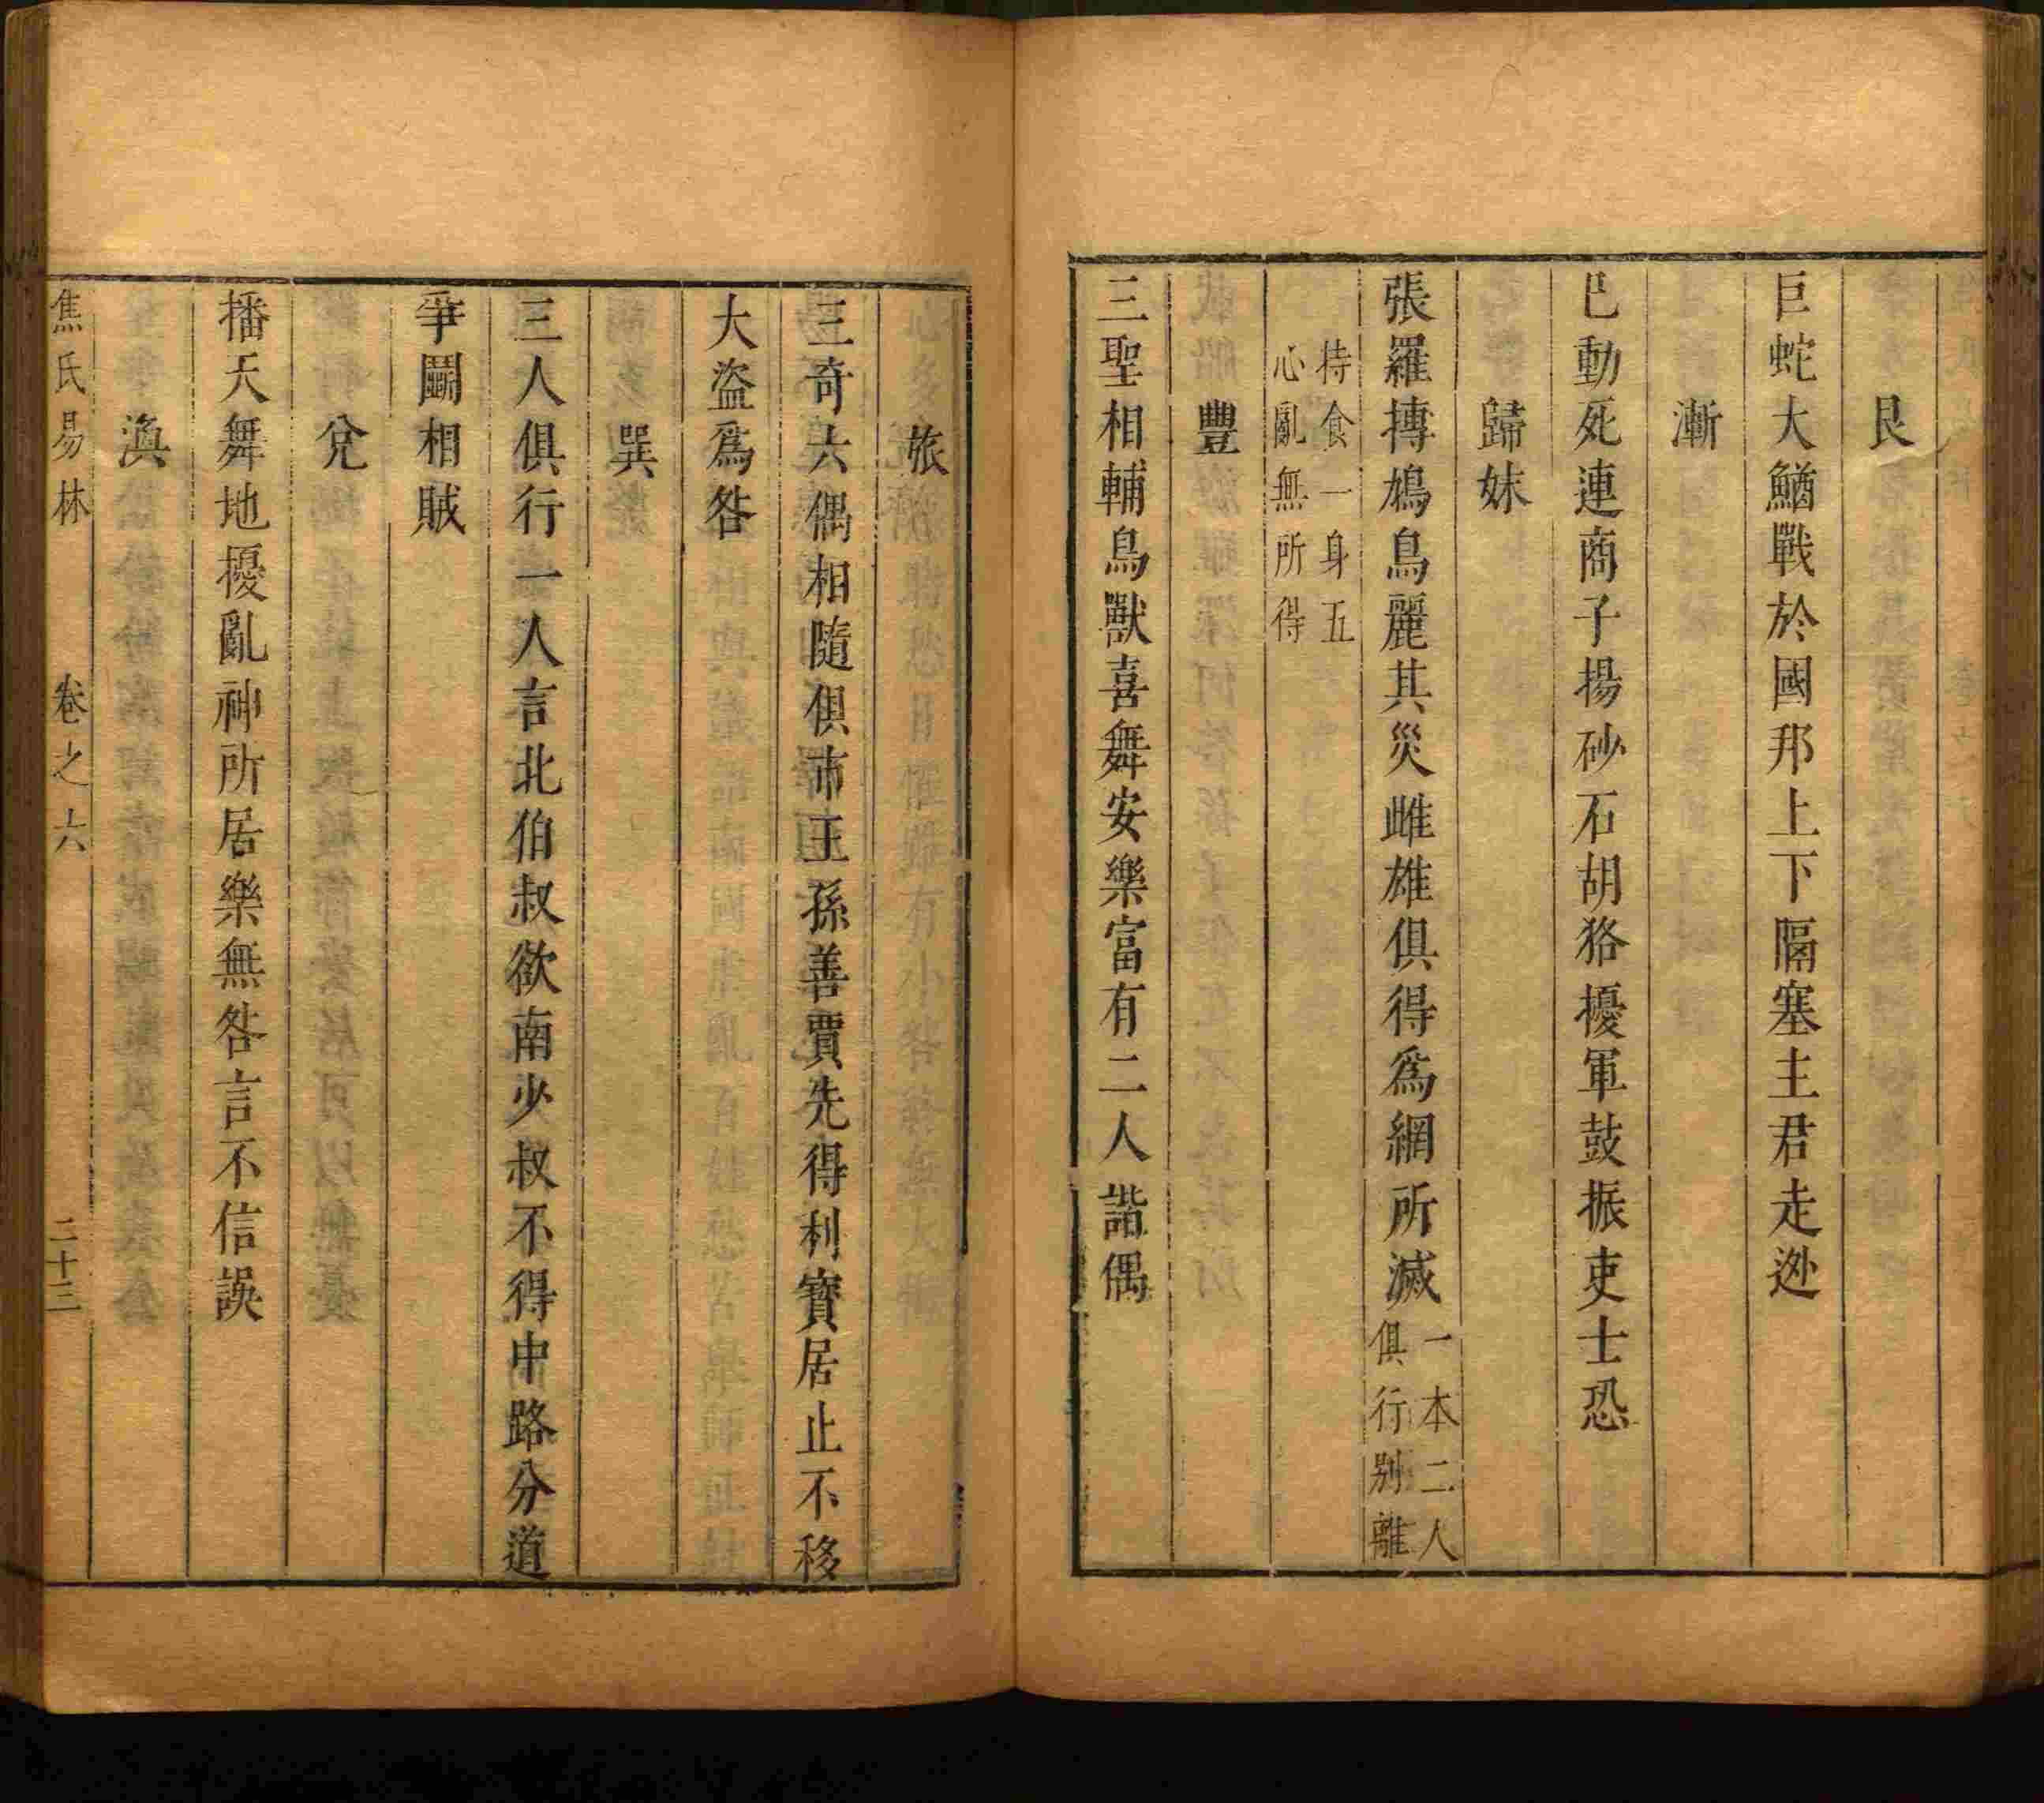 艮
巨蛇大鰌戰於國邦上下隔塞主君走逃
漸
巳動死連商子揚砂石胡狢擾軍鼓振吏士恐
歸妹
張羅摶鳩鳥麗其災雌雄俱得爲網所滅一本二人俱行別離
持食一身五心亂無所得
豐
三聖相輔鳥獸喜舞安樂富有二人諧偶
旅
三奇六偶相隨俱市王孫善賈先得利寶居止不移
大盜爲咎
巽
三人俱行一人言北伯叔欲南少叔不得中路分道
爭鬭相賊
兌
播天舞地擾亂神所居樂無咎言不信誤
渙
焦氏易林 卷之六 二十三